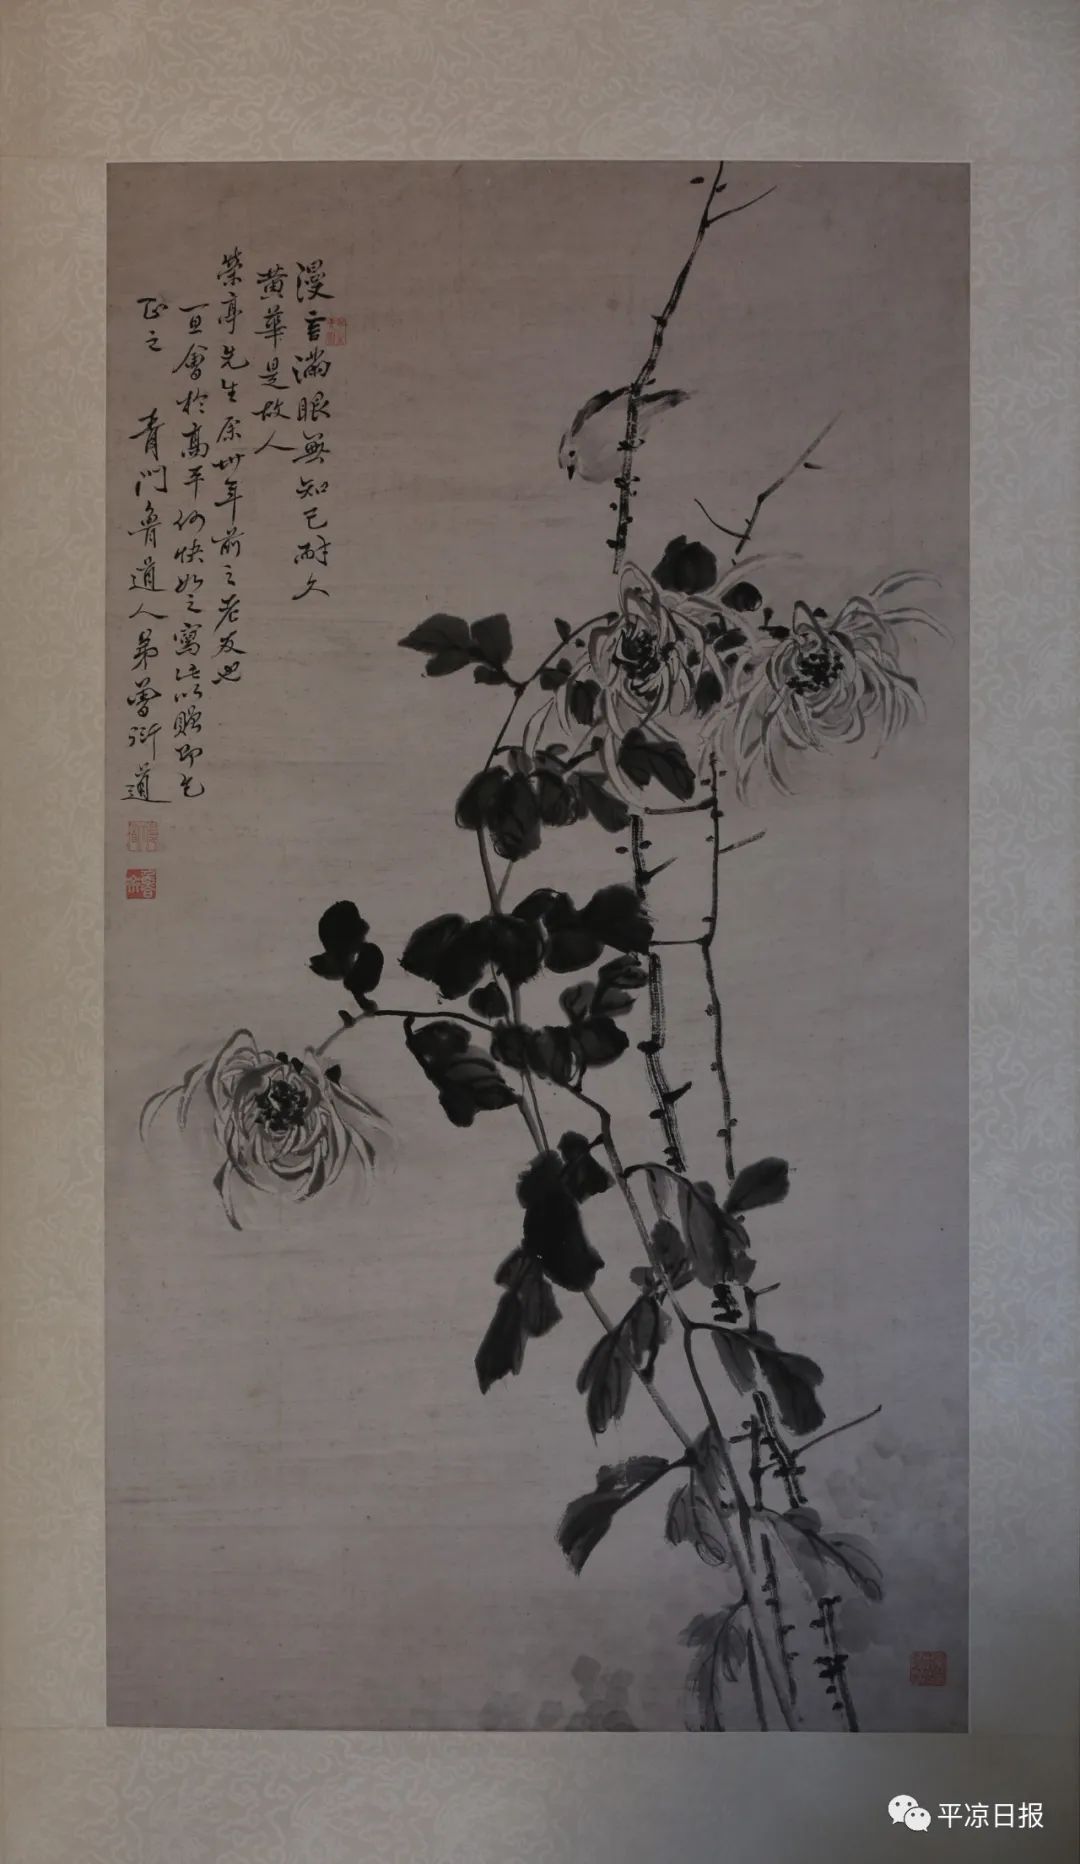 漫言滿眼無知己耐久
黄華是故人
榮亭先生原卅年前之老友也
一旦會於高平何快如之寫此以贈即乞
正之 青門魯道人弟曾衍道
平凉日报